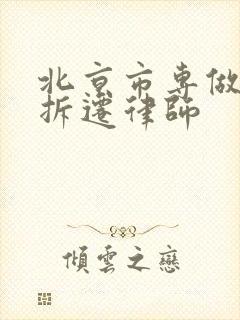 北京市专做
拆遷律師
傾雲之戀